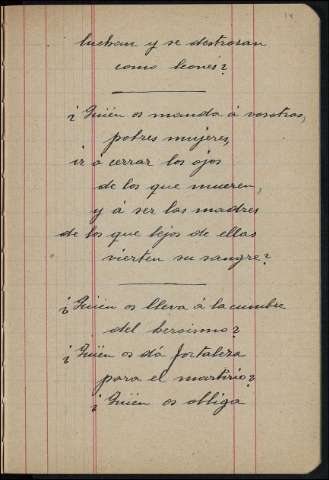 luchan y se destrosan
como leones?
¿Quién os manda á vosotras,
pobres mujeres,
ir á cerrar los ojos
de los que mueren,
y á ser las madres
de los que lejos de ellas
vierten su sangre?
¿Quién os lleva á la cumbre
del heroismo?
¿Quién os dá fortaleza
para el martirio?
¿Quién os obliga